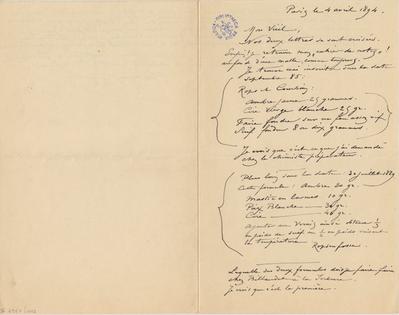 Paris le 4 avril 1894.
Mon Vieil,
Nos deux lettres se sont croisées.
Enfin! je retrouve mes cahier de notes!
au fond d'une malle comme toujours.
Je trouve une inscrite sous la date
septembre 85:
Rops & Courboin:
Ambre jaune 25 grammes.
Cire Vierge blanche 25 gr.
Faire fondre sur un feu assez vif
Suif fondu 8 ou dix grammes.
Je crois que c'est ce que j'ai demandé
chez le chimiste préparateur.
Plus loin sous la date: 30 juillet 1889
Cette formule: Ambre 20 gr.
Mastic en larmes 10 gr.
Poix Blanche 30 gr.
Cire 40 gr.
Ajouter au Vernis ainsi obtenu 1/4
en poids de suif ou 1/2 en poids suivant
la température
Ropsenfosse
Laquelle des deux formules dois-je faire faire
chez
Je crois que c'est la première.